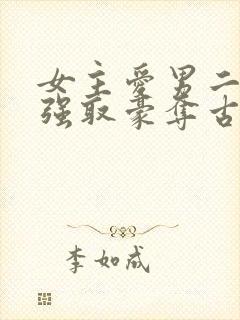 女主愛男二
强取豪奪古
李如成